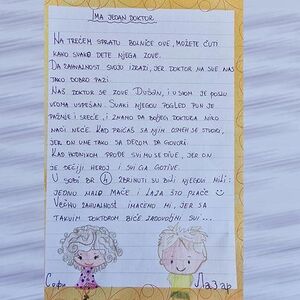 IMA JEDAN DOKTOR
NA TREĆEM SPRATU BOLNICE OVE, MOŽETE ČUTI
KAKO SVAKO DETE NJEGA ZOVE.
DA ZAHVALNOST SVOJU IZRAZI, JER DOKTOR NA SVE NAS
TAKO DOBRO PAZI.
NAŠ DOKTOR SE ZOVE DUŠAN, I U SVOM JE POSLU
VEOMA USPEŠAN. SVAKI NJEGOV POGLED PUN JE
PAŽNJE I SREĆE, I ZNAMO DA BOLJEG DOKTORA NIKO
NAĆI NEĆE. KAD PRIČAŠ SA NJIM OSMEH SE STVORI,
JER ON UME TAKO SA DECOM DA GOVORI.
KAD HODNIKOM PROĐE SVI MU SE DIVE, JER ON
JE DEČIJI HEROJ I SVI GA GOTIVE.
U SOBI BR 4 ZBRINUTI SU BILI NJEGOVI MILI:
JEDNO MALO MAČE I LAJA ŠTO PLAČE
VEČNU ZAHVALNOST IMAĆEMO MI, JER SA
TAKVIM DOKTOROM BIĆE ZADOVOLJNI SVI ...
Софи
Лазар